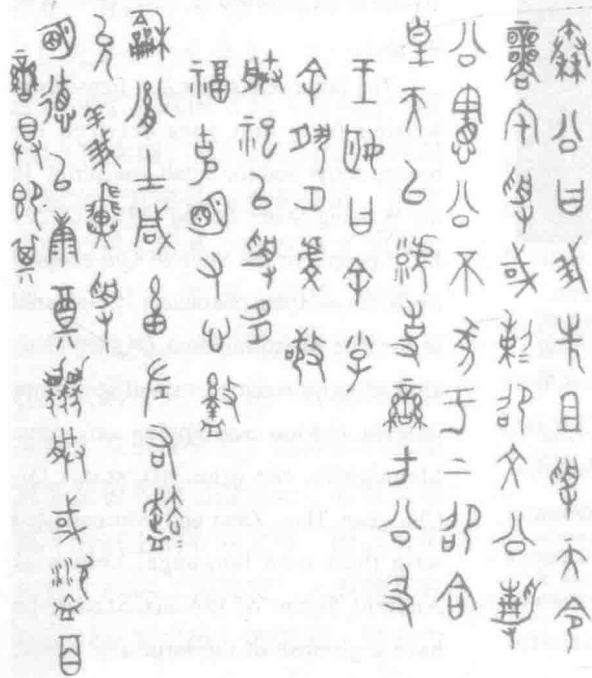 秦公曰我先且受天令
商宅受或剌卲文公靜
公憲公不彖于上卲合
皇天以虩事蠻方公及
王姬曰余小
子余夙夕虔敬
朕祀以受多
福克明又心盭
龢胤士咸畜左右趩
允義翼受
明德以康奠協朕或盜百
蠻具即其